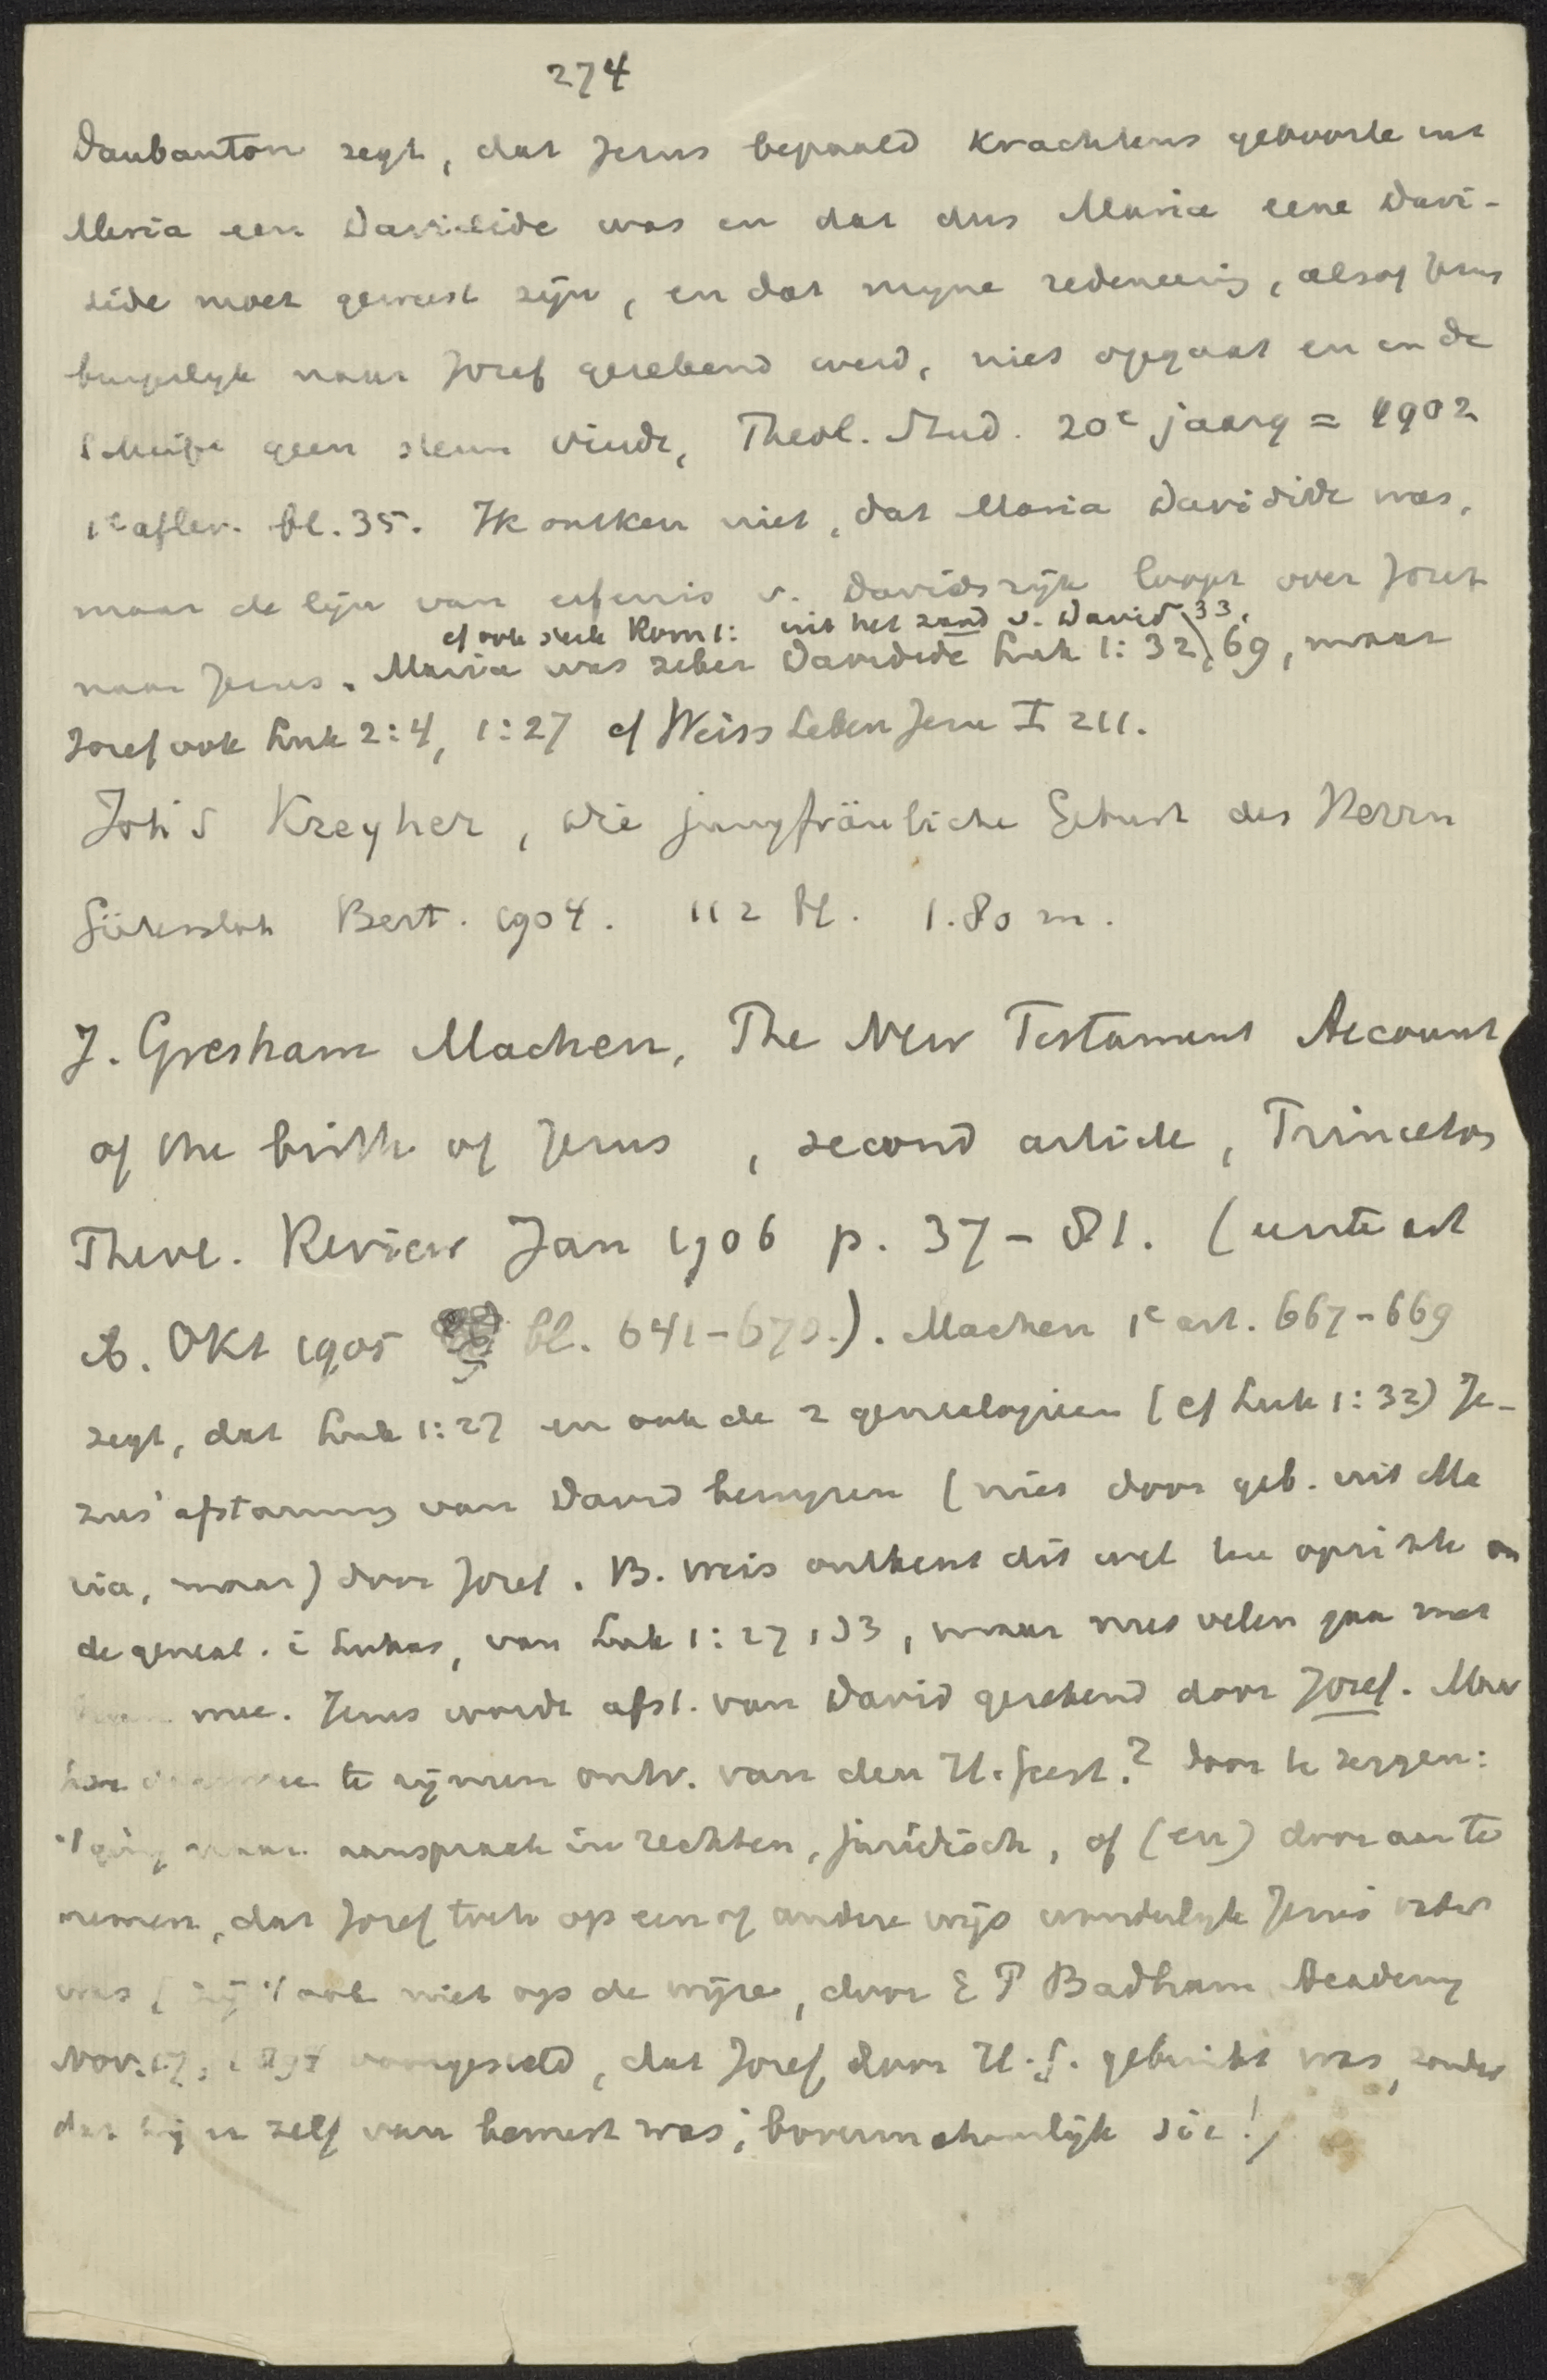 274
Daubanton zegt, dat Jezus bepaald krachtens geboorte uit
Maria een Davidide was en dat dus Maria eene Davi-
dide moet geweest zijn, en dat myne redeneering, alsof Jezus
burgerlyk naar Jozef gerekend werd, niet opgaat en in de
Schrift geen steun vindt, Theol. Stud. 20e jaarg = 1902
1e aflev. bl. 35. Ik ontken niet, dat Maria Davidide was,
maar de lijn van erfenis v. Davids rijk loopt over Jozef
cf ook sterk Rom 1: uit het zaad v. David 33,
naar Jezus. Maria was zeker Davidide Luk 1:32, 69, maar
Jozef ook Luk 2:4, 1:27 cf Weiss Leben Jesu I 211.
Joh's Kreyher, Die jungfräuliche Geburt des Herrn
Gütersloh Bert. 1904. 112 bl. 1.80 m.
J. Gresham Machen, The New Testament Account
of the birth of Jesus, second article, Princeton
Theol. Review Jan 1906 p. 37-81. (eerste art
ib. Okt 1905 bl. 641-670.). Machen 1e art. 667-669
zegt, dat Luk 1:27 en ook de 2 genealogieen (cf Luk 1:32) Je-
zus' afstamming van David bewyzen (niet door geb. uit Ma
ria, maar) door Jozef. B. Weis ontkent dit wel ten opzichte van
de geneal. i Lukas, van Luk 1:27, 33, maar niet velen gaan met
hem mee. Jezus wordt afst. van David gerekend door Jozef. Maar
hoe daarmee te rijmen ontv. van den H. Geest? Door te zeggen:
't ging naar aanspraak in rechten, juridisch, of (en) door aan te
nemen, dat Jozef toch op een of andere wijs wonderlyk Jezus' vader
was (zij 't ook niet op de wijze, door E P Badham Academy
Nov. 17, voorgesteld, dat Jozef door H. G. gebruikt was, zonder
dat hij er zelf van bewust was; bovennatuurlijk sic!)